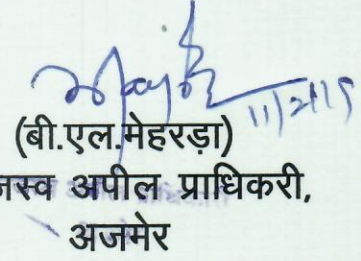 (बी.एल.मेहरड़ा)
जस्व अपील प्राधिकरी,
अजमेर